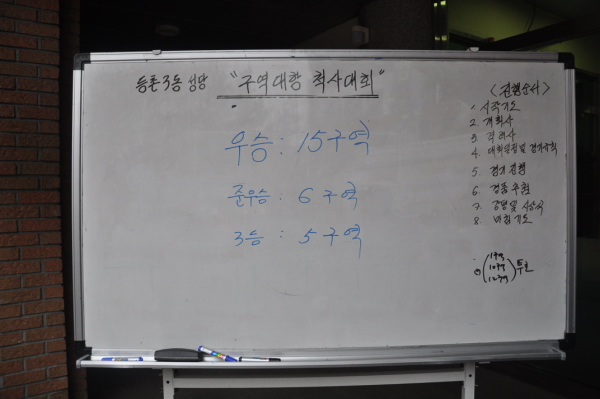 등촌3동 성당 "구역대항 척사대회"
우승 : 15구역
준우승 : 6구역
3등 : 5구역
<진행순서>
1. 시작기도
2. 개회사
3. 격려사
4. 대회일정 및 경기규칙
5. 경기진행
6. 경품추첨
7. 강평 및 시상식
8. 마침기도
투호